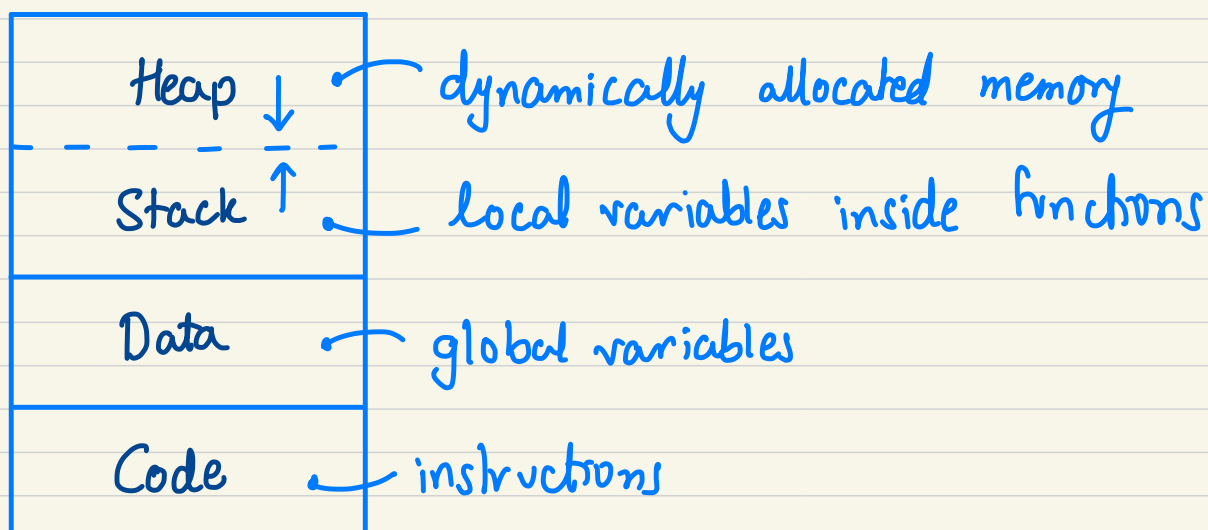 Heap dynamically allocated memory
Stack local variables inside functions
Data global variables
Code instructions